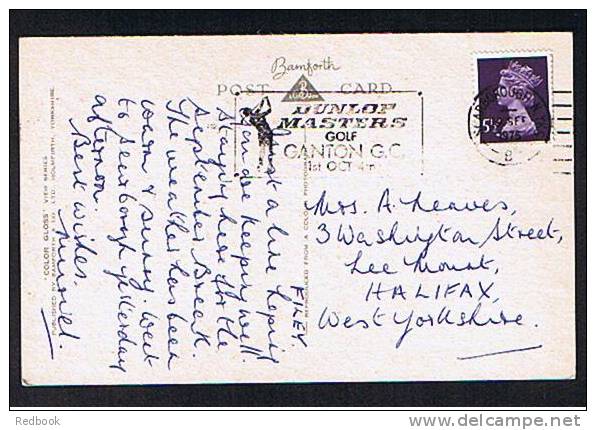 Bamforth
POST CARD
DUNLOP
MASTERS
GOLF
GANTON G.C.
1st OCT 4th
SCARBOROUGH
SEP
1975
B
5½P
FILEY.
Just a line hoping
you are keeping well.
Staying here for the
September Break.
The weather has been
warm & sunny. Went
to Scarborough yesterday
afternoon.
Best wishes.
Muriel.
Mrs. A. Neaves,
3 Washington Street,
Lee Mount,
HALIFAX,
West Yorkshire.
"COLOR GLOSS" VIEW SERIES
PUBLISHED BY BAMFORTH & CO. LTD., HOLMFIRTH, YORKSHIRE.
REPRODUCED FROM A COLOR PHOTOGRAPH
Redbook
delcampe.net